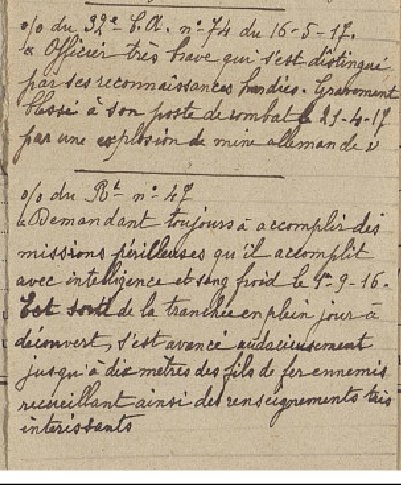 o/o du 32e C.A. n° 74 du 16-5-17.
« Officier très brave qui s'est distingué
par ses reconnaissances hardies. Gravement
blessé à son poste de combat le 21-4-17
par une explosion de mine allemande »
o/o du Rt n° 47
« Demandant toujours à accomplir des
missions périlleuses qu'il accomplit
avec intelligence et sang froid le 9-16.
Est sorti de la tranchée en plein jour à
découvert, s'est avancé audacieusement
jusqu'à dix mètres des fils de fer ennemis
recueillant ainsi des renseignements très
intéressants